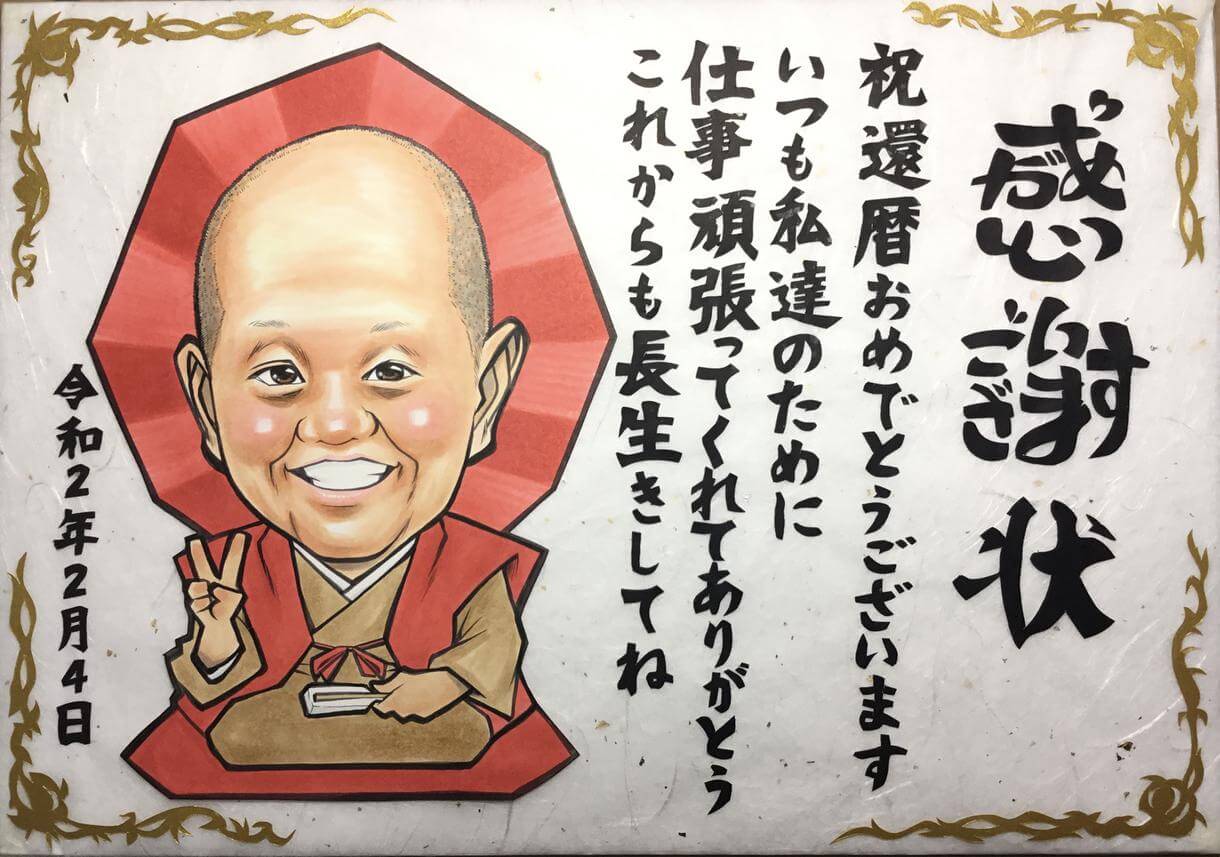 感謝状
祝還暦おめでとうございます
いつも私達のために
仕事頑張ってくれてありがとう
これからも長生きしてね
令和2年2月4日